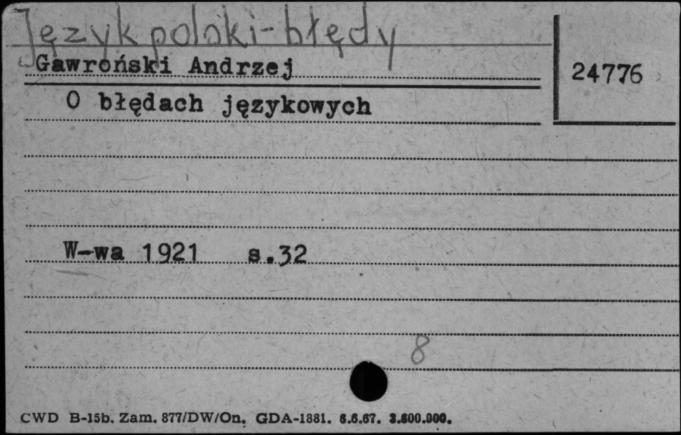 Język polski - błędy
Gawroński Andrzej
24776
O błędach językowych
W-wa 1921 s.32
8
CWD B-15b. Zam. 877/DW/On. GDA-1881. 6.6.67. 3.600.000.